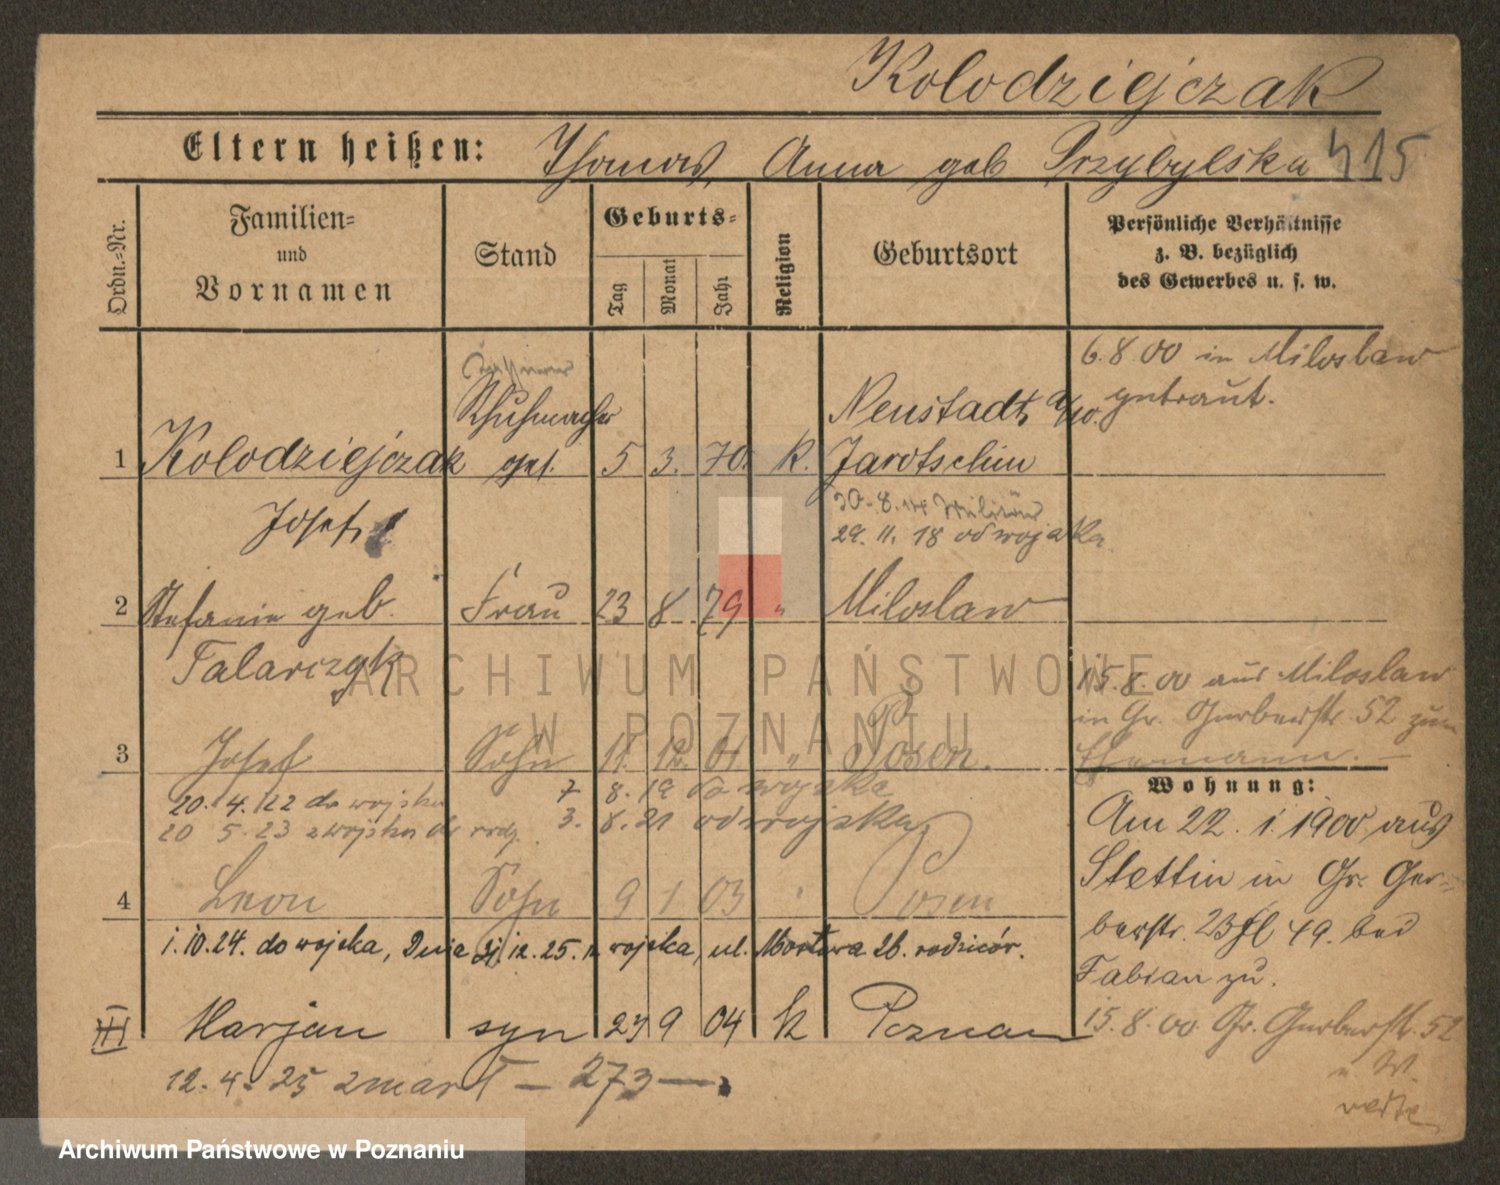 Kolodziejczak
Eltern heißen: Thomas, Anna geb Przybylska 415
Ordn.-Nr.
Familien-
und
Vornamen
Stand
Geburts-
Tag
Monat
Jahr
Religion
Geburtsort
Persönliche Verhältnisse
z. B. bezüglich
des Gewerbes u. s. w.
6.8.00 in Miloslaw
getraut.
Schuhmacher
Neustadt
1 Kolodziejczak ges. 5 3. 70. k. Jarotschin
Josef
30.8. Militär
29. 11. 18 od wojska
2 Stefanie geb. Frau 23 8 79 " Miloslaw
Talarczyk
15.8.00 aus Miloslaw
in Gr. Gerberstr. 52 zum
Ehemann.
3 Josef Sohn 11. 12. 01 " Posen.
20. 4. 22 do wojska 7 8. 19 do wojska
20 5. 23 z wojska do rodz. 3. 8. 21 od wojska
Wohnung:
Am 22. 1. 1900 aus
Stettin in Gr. Ger-
berstr. 23 49. bei
Fabian zu.
4 Leon Sohn 9 1 03 " Posen
1.10.24. do wojska, Dnia 12.25. z wojska, ul. Mostowa 26. rodziców.
III Marjan syn 27 9 04 k Poznan
15.8.00. Gr. Gerberstr. 52
12. 4. 25 zmarł — 273 —
verte
ARCHIWUM PAŃSTWOWE
W POZNANIU
Archiwum Państwowe w Poznaniu